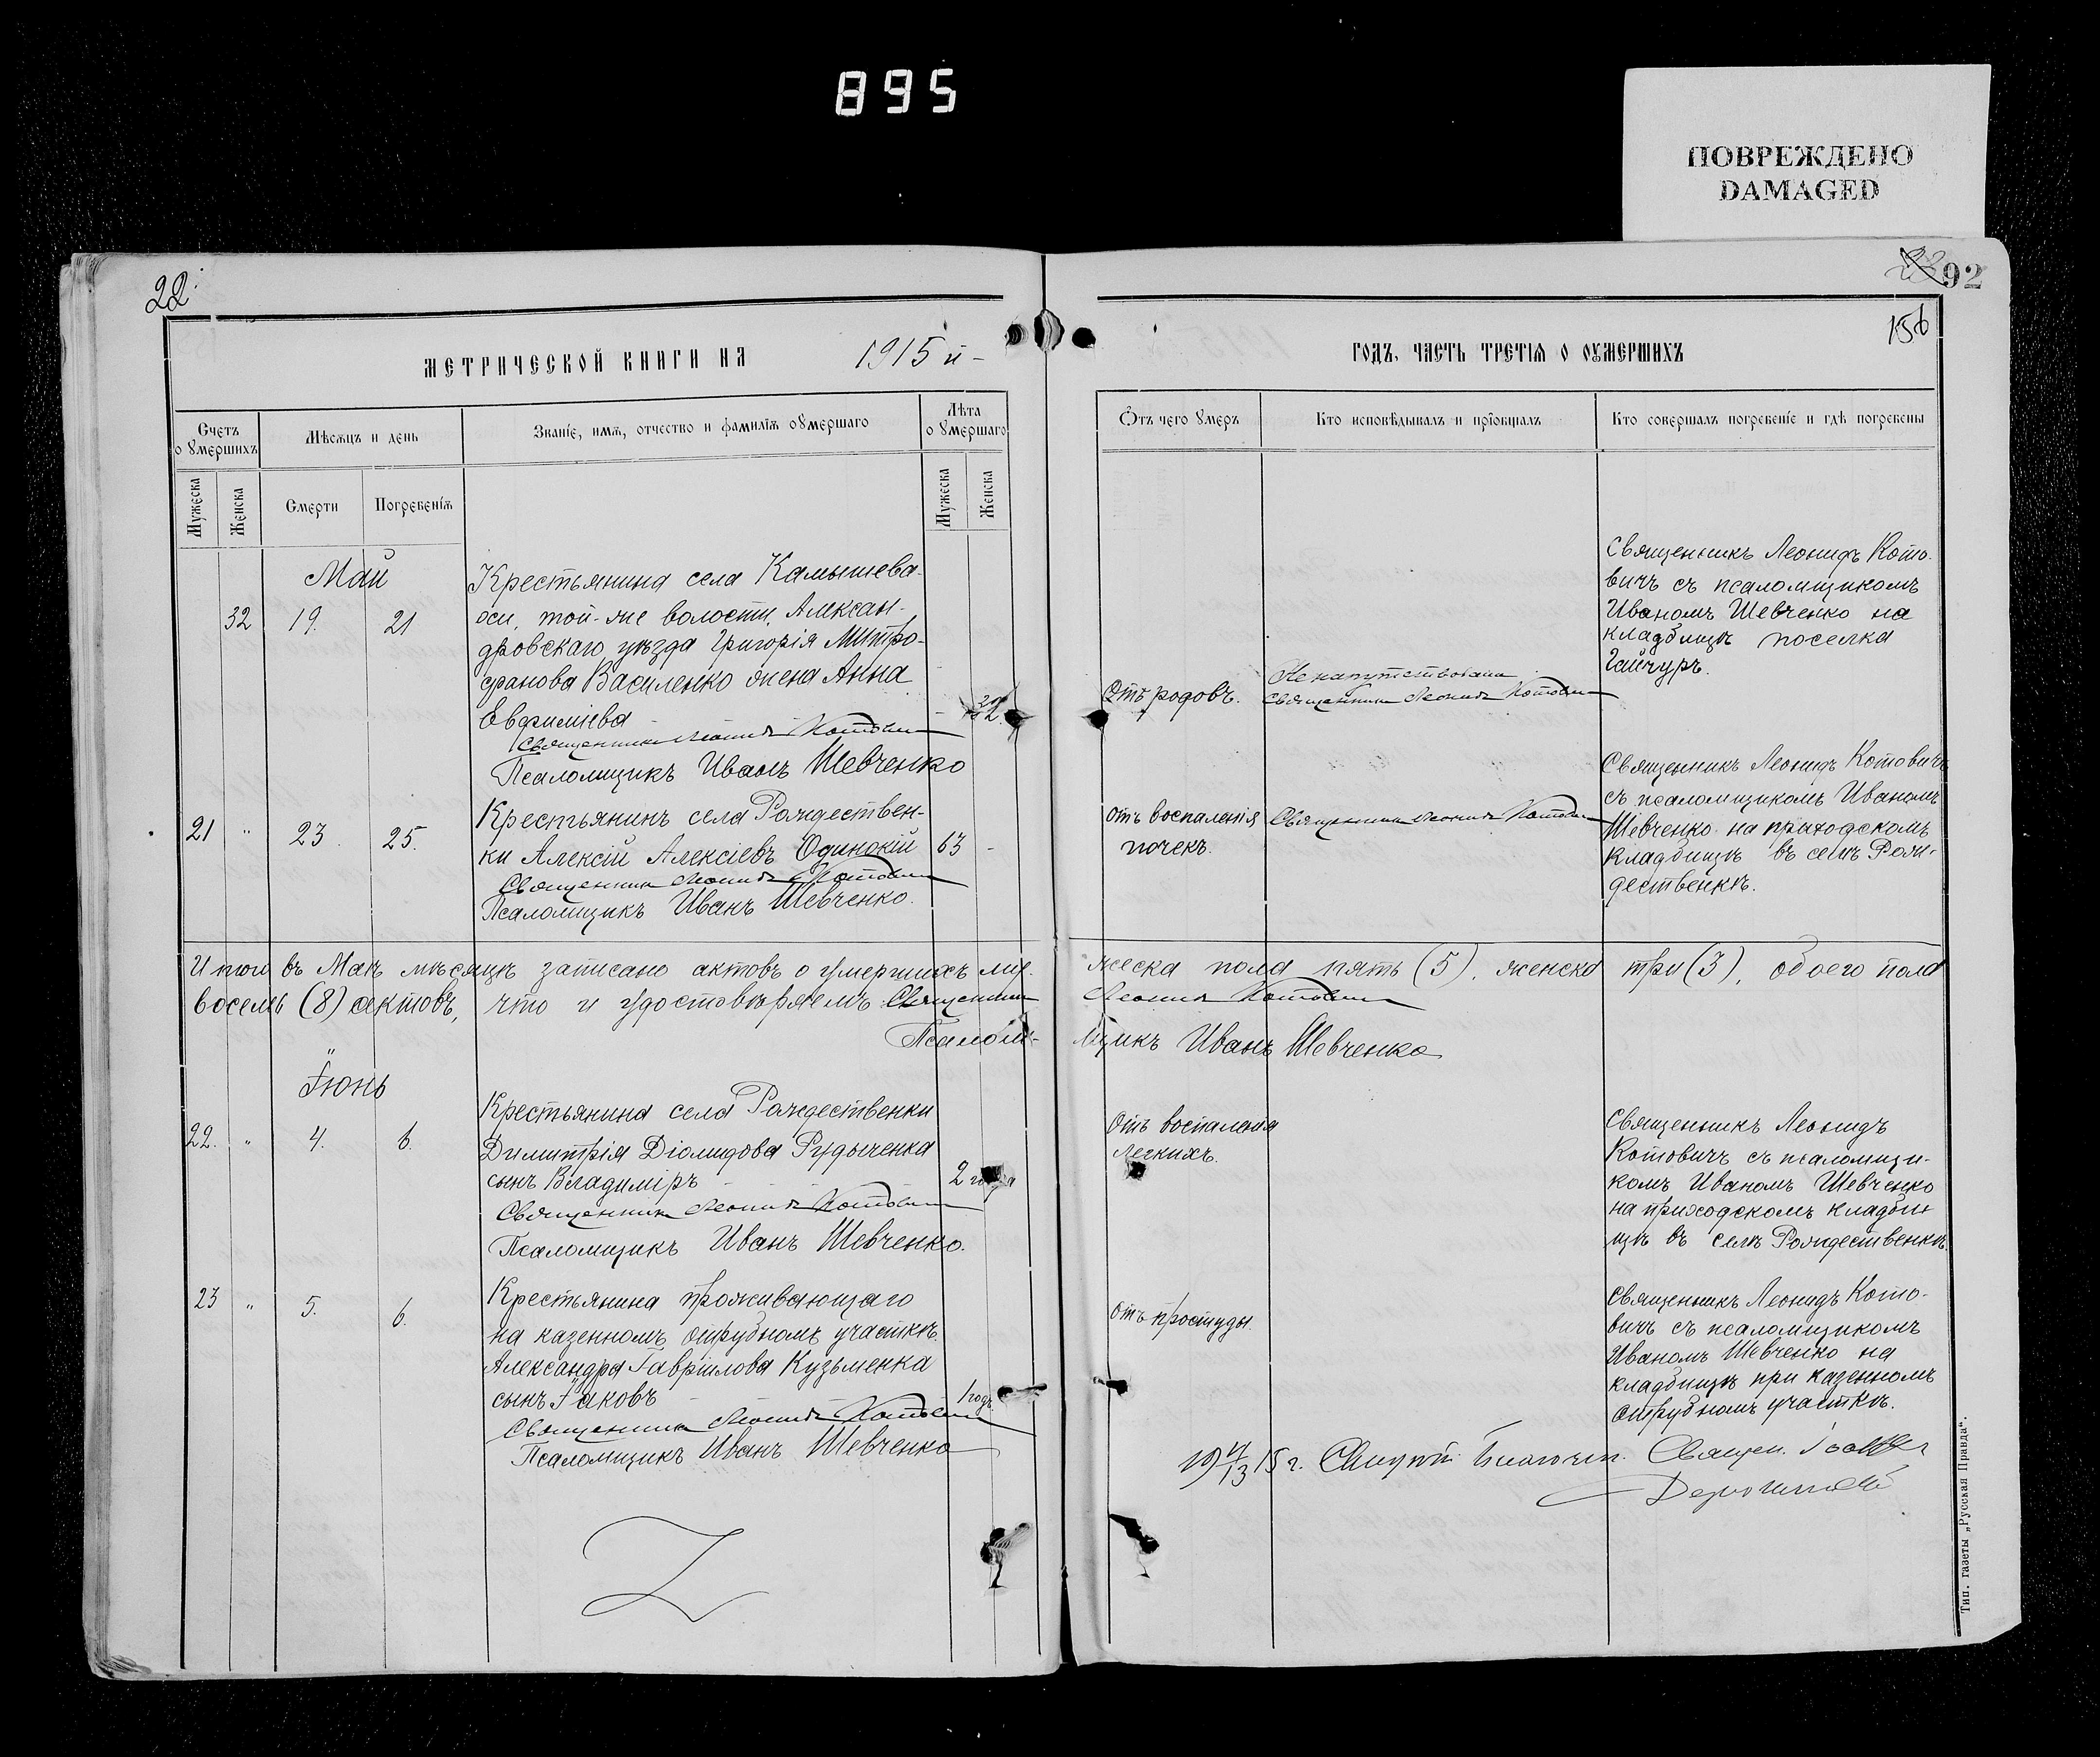 895
ПОВРЕЖДЕНО
DAMAGED
22
92
156
МЕТРИЧЕСКОЙ КНИГИ НА 1915 й
ГОДЪ, ЧАСТЬ ТРЕТІЯ О ОУМЕРШИХЪ
Счетъ оумершихъ
Мѣсяцъ и день
Званіе, имя, отчество и фамилія оумершаго
Лѣта оумершаго
Мужеска
Женска
Смерти
Погребенія
Мужеска
Женска
Отъ чего умеръ
Кто исповѣдывалъ и пріобщалъ
Кто совершалъ погребеніе и гдѣ погребены
Май
32 19. 21
Крестьянина села Камышева-
хи, той-же волости, Алексан-
дровскаго уѣзда Григорія Митро-
фанова Василенко жена Анна
Евфиміева
32.
Священникъ Леонидъ Котовичъ
Псаломщикъ Иванъ Шевченко
Отъ родовъ.
Священникъ Леонидъ Котовичъ
Священникъ Леонидъ Кото-
вичъ съ псаломщикомъ
Иваномъ Шевченко на
кладбищѣ поселка
Гайчуръ.
21 " 23. 25.
Крестьянинъ села Рождествен-
ки Алексій Алексіевъ Одинокій
63 -
Священникъ Леонидъ Котовичъ
Псаломщикъ Иванъ Шевченко.
отъ воспаленія
почекъ.
Священникъ Леонидъ Котовичъ
Священникъ Леонидъ Котовичъ
съ псаломщикомъ Иваномъ
Шевченко на приходскомъ
кладбищѣ въ селѣ Рож-
дественкѣ.
Итого въ Маѣ мѣсяцѣ записано актовъ о умершихъ му-
жеска пола пять (5), женска три (3), обоего пола
восемь (8) актовъ, что и удостовѣряемъ: Священникъ
Леонидъ Котовичъ
Псалом-
щикъ Иванъ Шевченко
Іюнь
22. " 4. 6.
Крестьянина села Рождественки
Димитрія Діомидова Рудыченка
сынъ Владиміръ
2 года
Священникъ Леонидъ Котовичъ
Псаломщикъ Иванъ Шевченко.
Отъ воспаленія
легкихъ.
Священникъ Леонидъ
Котовичъ съ псаломщи-
комъ Иваномъ Шевченко
на приходскомъ кладби-
щѣ въ селѣ Рождественкѣ.
23 " 5. 6.
Крестьянина проживающаго
на казенномъ отрубномъ участкѣ
Александра Гавріилова Кузьменка
сынъ Іаковъ
1 годъ.
Священникъ Леонидъ Котовичъ
Псаломщикъ Иванъ Шевченко
отъ простуды
Священникъ Леонидъ Кото-
вичъ съ псаломщикомъ
Иваномъ Шевченко на
кладбищѣ при казенномъ
отрубномъ участкѣ.
Священ.
Тип. газеты „Русская Правда“.